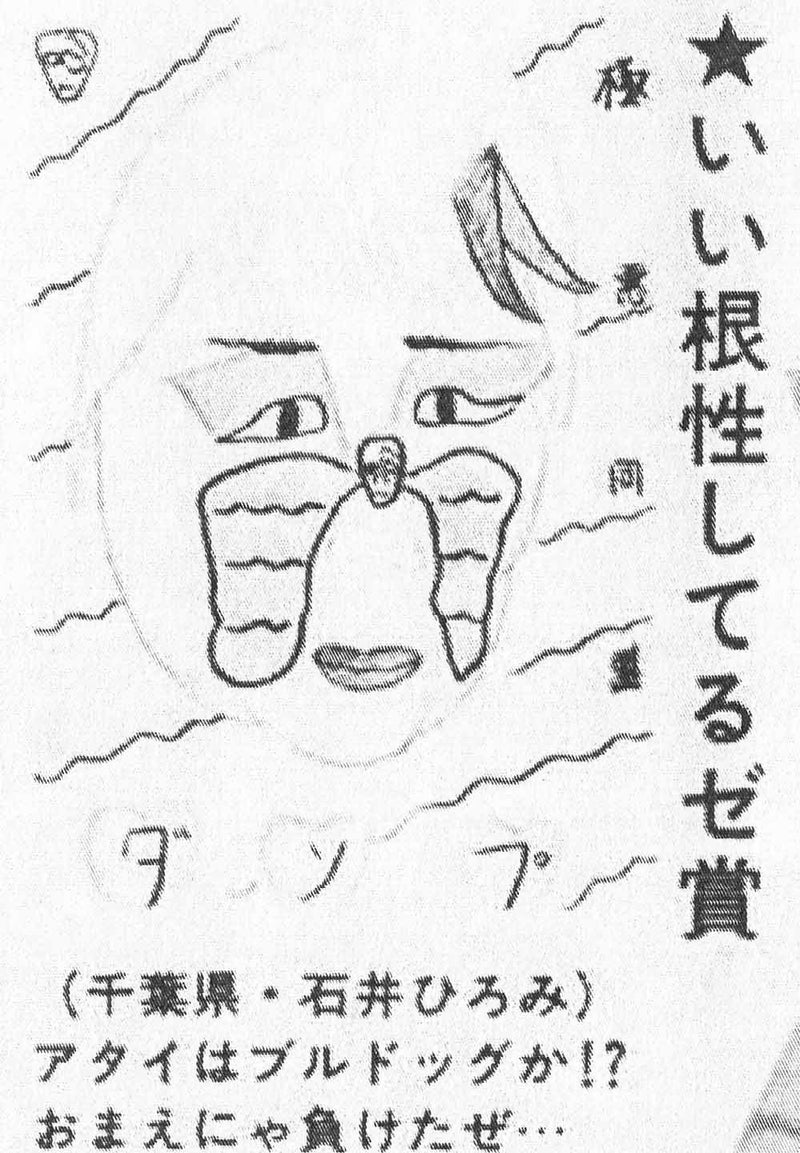 ★いい根性してるゼ賞
極悪同盟
ダンプ
(千葉県・石井ひろみ)
アタイはブルドッグか!?
おまえにゃ負けたぜ…